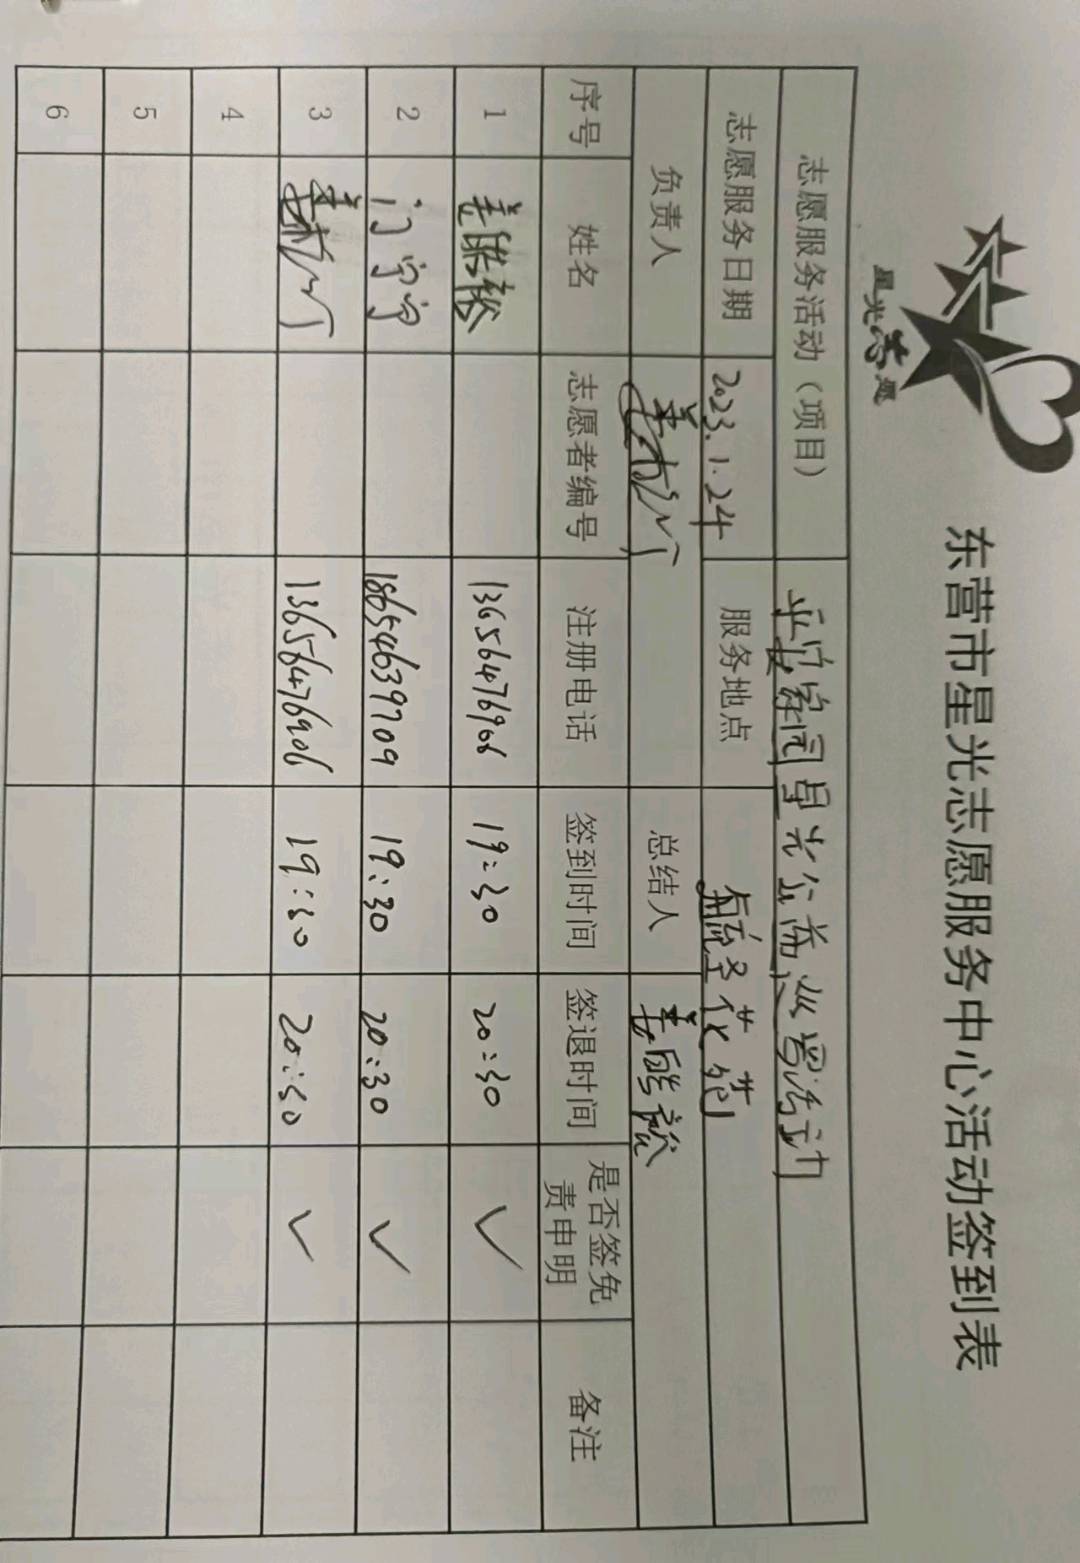 星光志愿
东营市星光志愿服务中心活动签到表
志愿服务活动（项目） 平安家园星光公益巡逻活动
志愿服务日期 2023.1.24 服务地点 圣花苑
负责人 姜 总结人 姜
序号 姓名 志愿者编号 注册电话 签到时间 签退时间 是否签免责申明 备注
1 姜 13656476906 19:30 20:30 ✓
2 门宁宁 18654639709 19:30 20:30 ✓
3 姜 13656476906 19:30 20:30 ✓
4
5
6